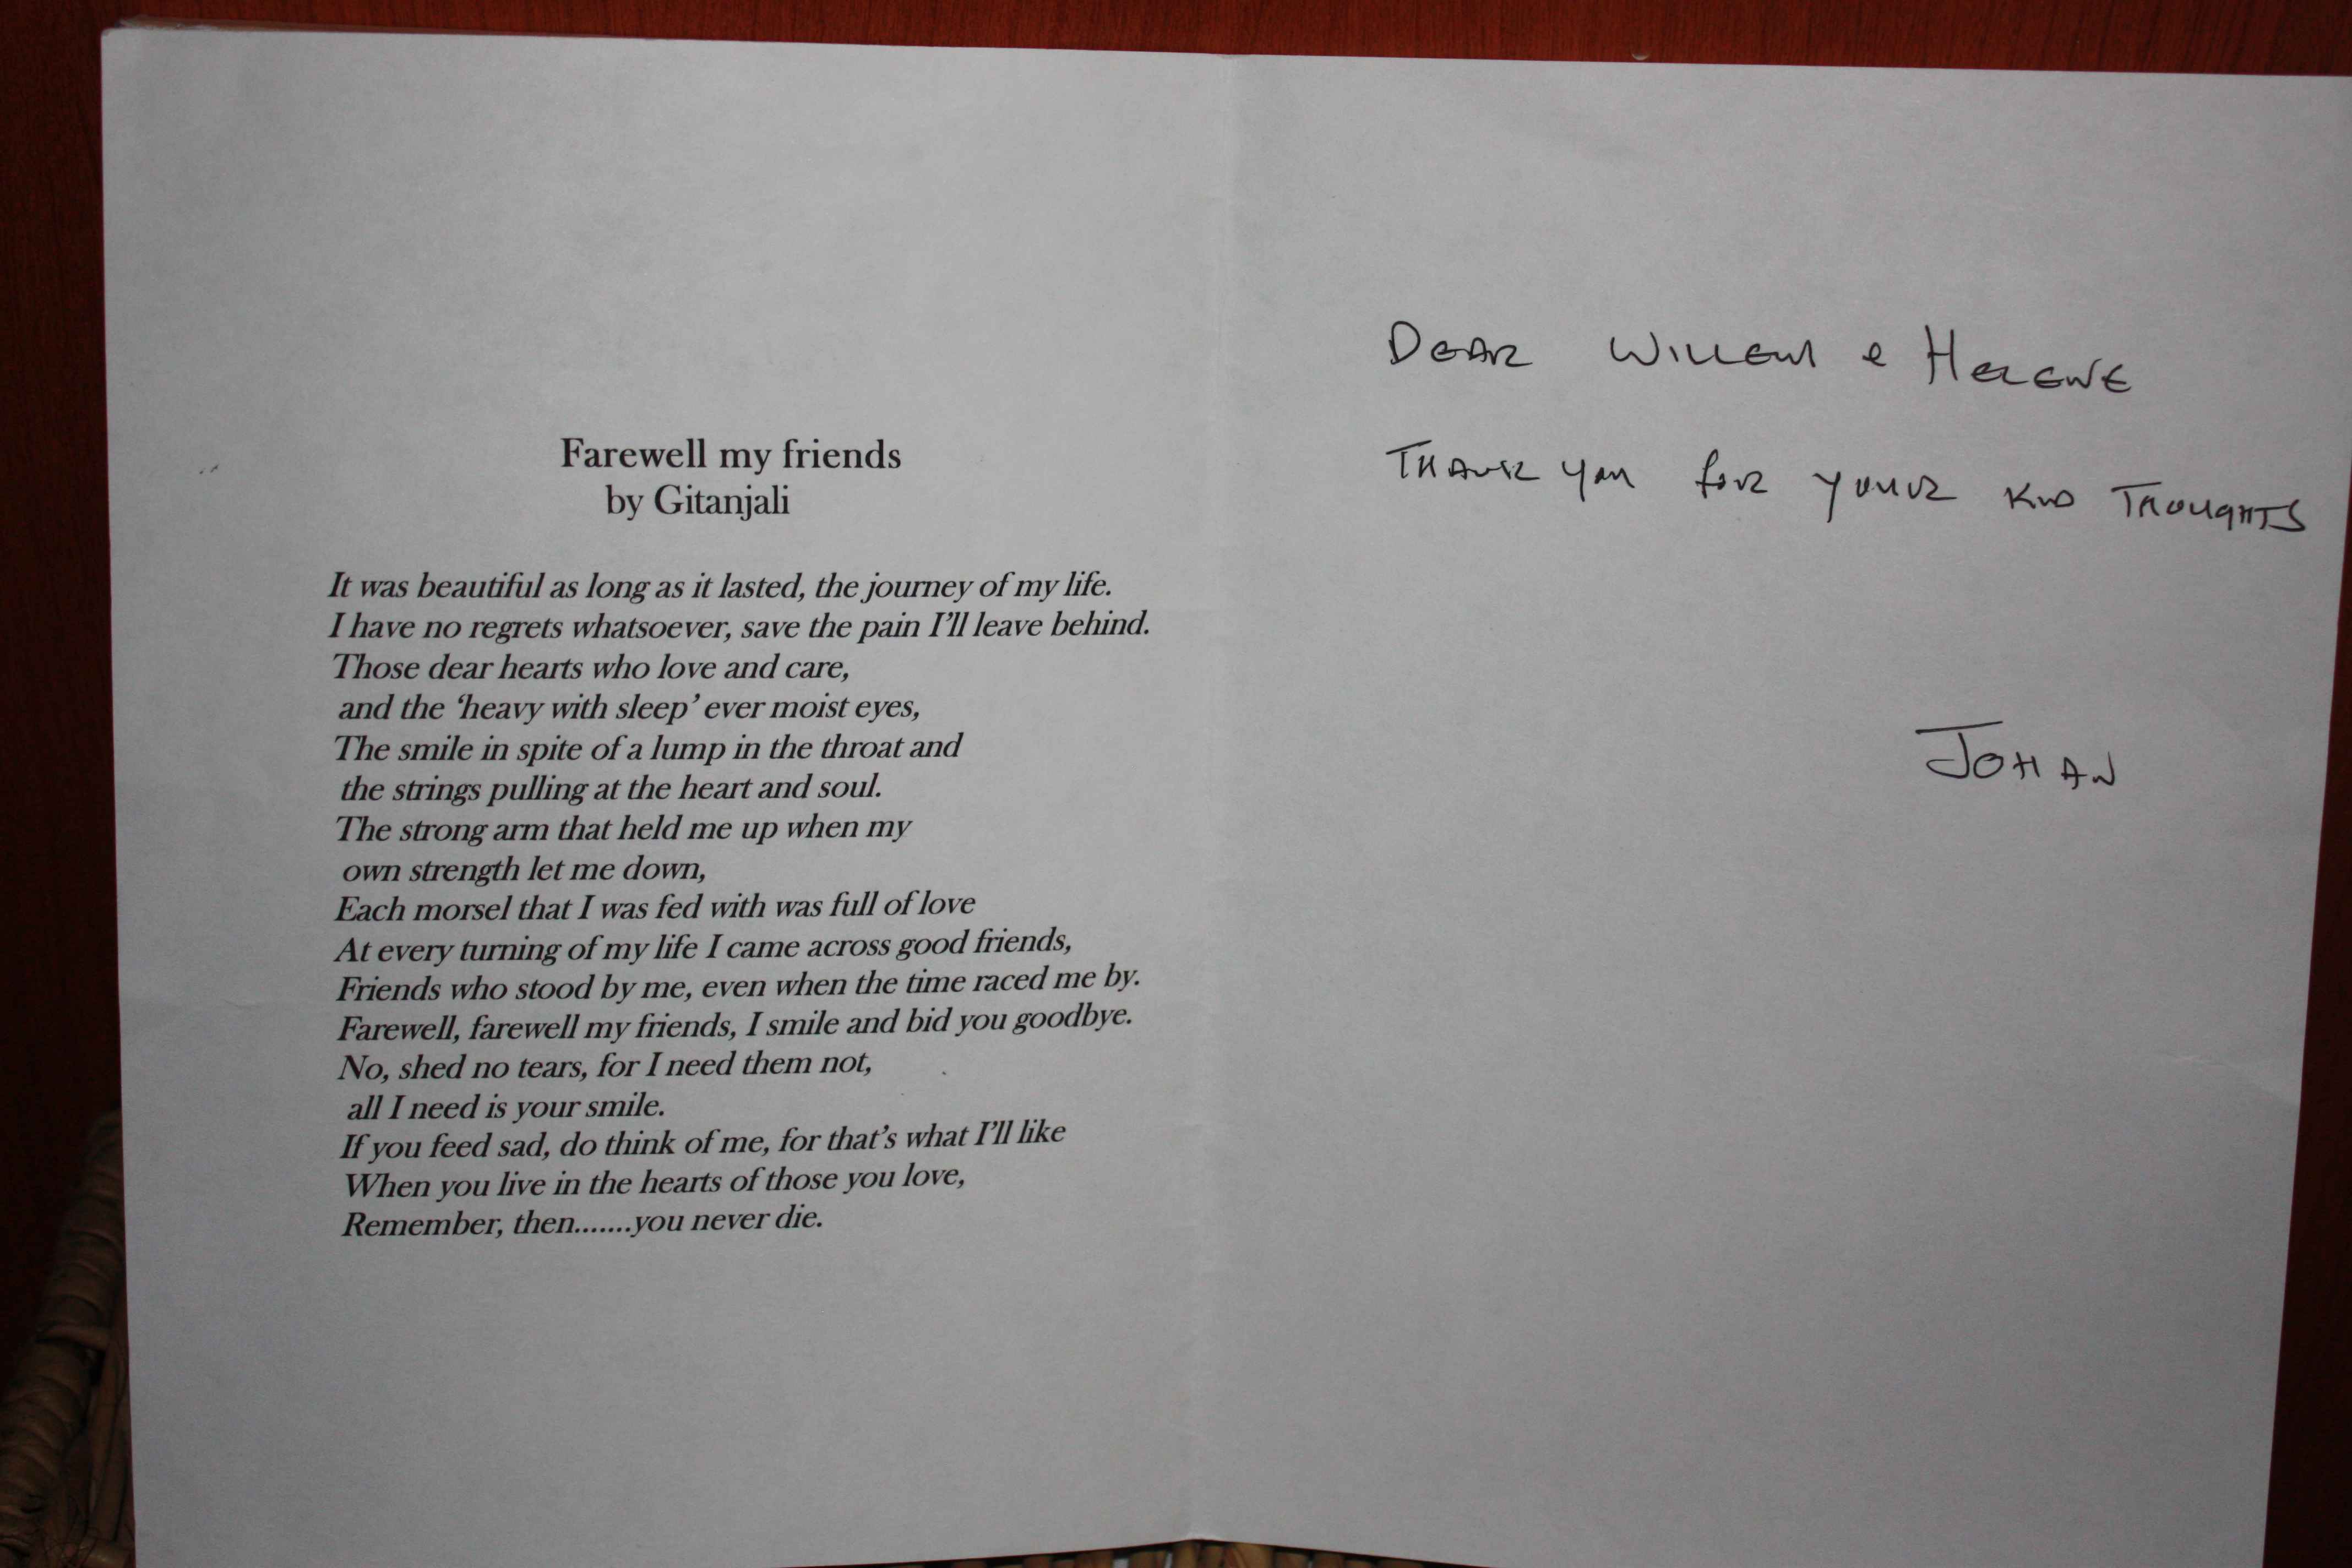 Farewell my friends
by Gitanjali
It was beautiful as long as it lasted, the journey of my life.
I have no regrets whatsoever, save the pain I'll leave behind.
Those dear hearts who love and care,
and the 'heavy with sleep' ever moist eyes,
The smile in spite of a lump in the throat and
the strings pulling at the heart and soul.
The strong arm that held me up when my
own strength let me down,
Each morsel that I was fed with was full of love
At every turning of my life I came across good friends,
Friends who stood by me, even when the time raced me by.
Farewell, farewell my friends, I smile and bid you goodbye.
No, shed no tears, for I need them not,
all I need is your smile.
If you feed sad, do think of me, for that's what I'll like
When you live in the hearts of those you love,
Remember, then.......you never die.
DEAR WILLEM e HELENE
THANK YOU for YOUR KIND THOUGHTS
JOHAN